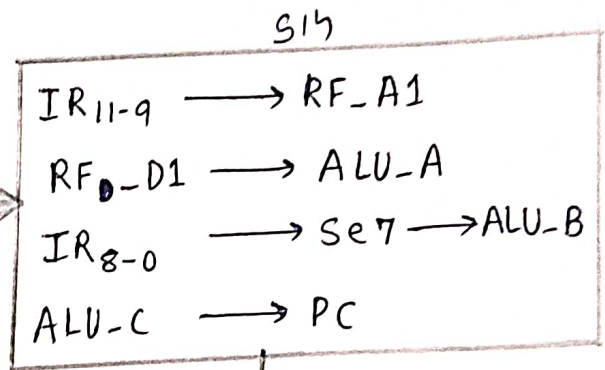 S15
IR11-9 → RF_A1
RF_D1 → ALU_A
IR8-0 → Se7 → ALU_B
ALU_C → PC